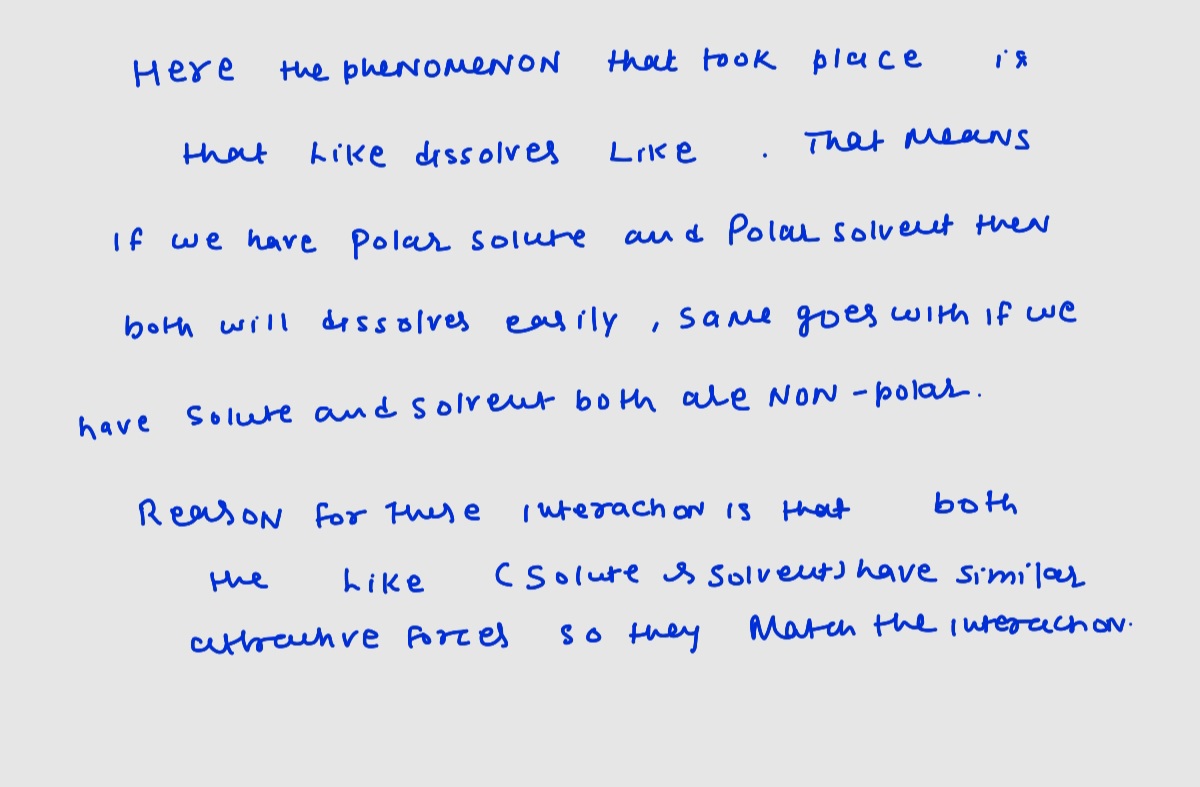 Here the phenomenon that took place is
that Like dissolves Like . That means
If we have Polar solute and Polar solvent then
both will dissolves easily , same goes with if we
have solute and solvent both are NON-polar.
Reason for these interaction is that both
the Like (Solute & Solvent) have similar
attractive forces so they Match the interaction.